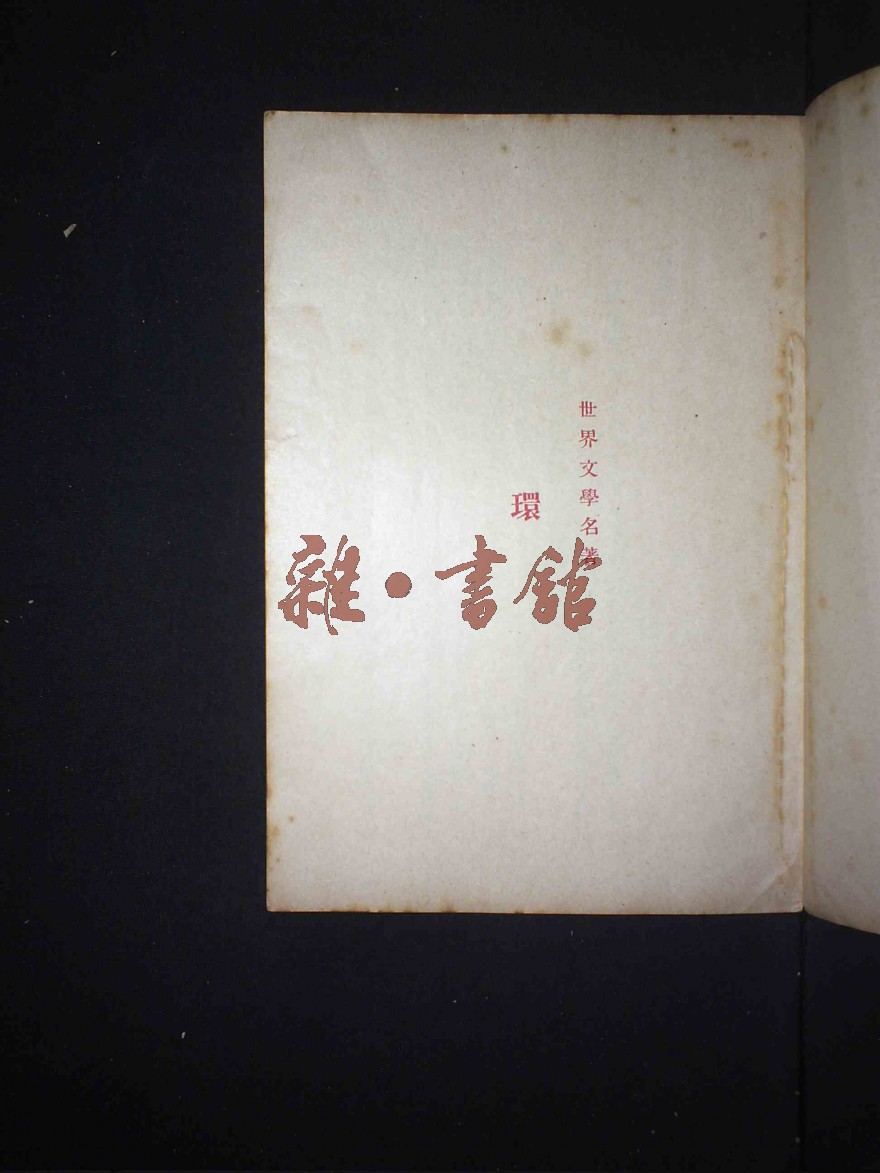 世界文學名著
環
雜·書館